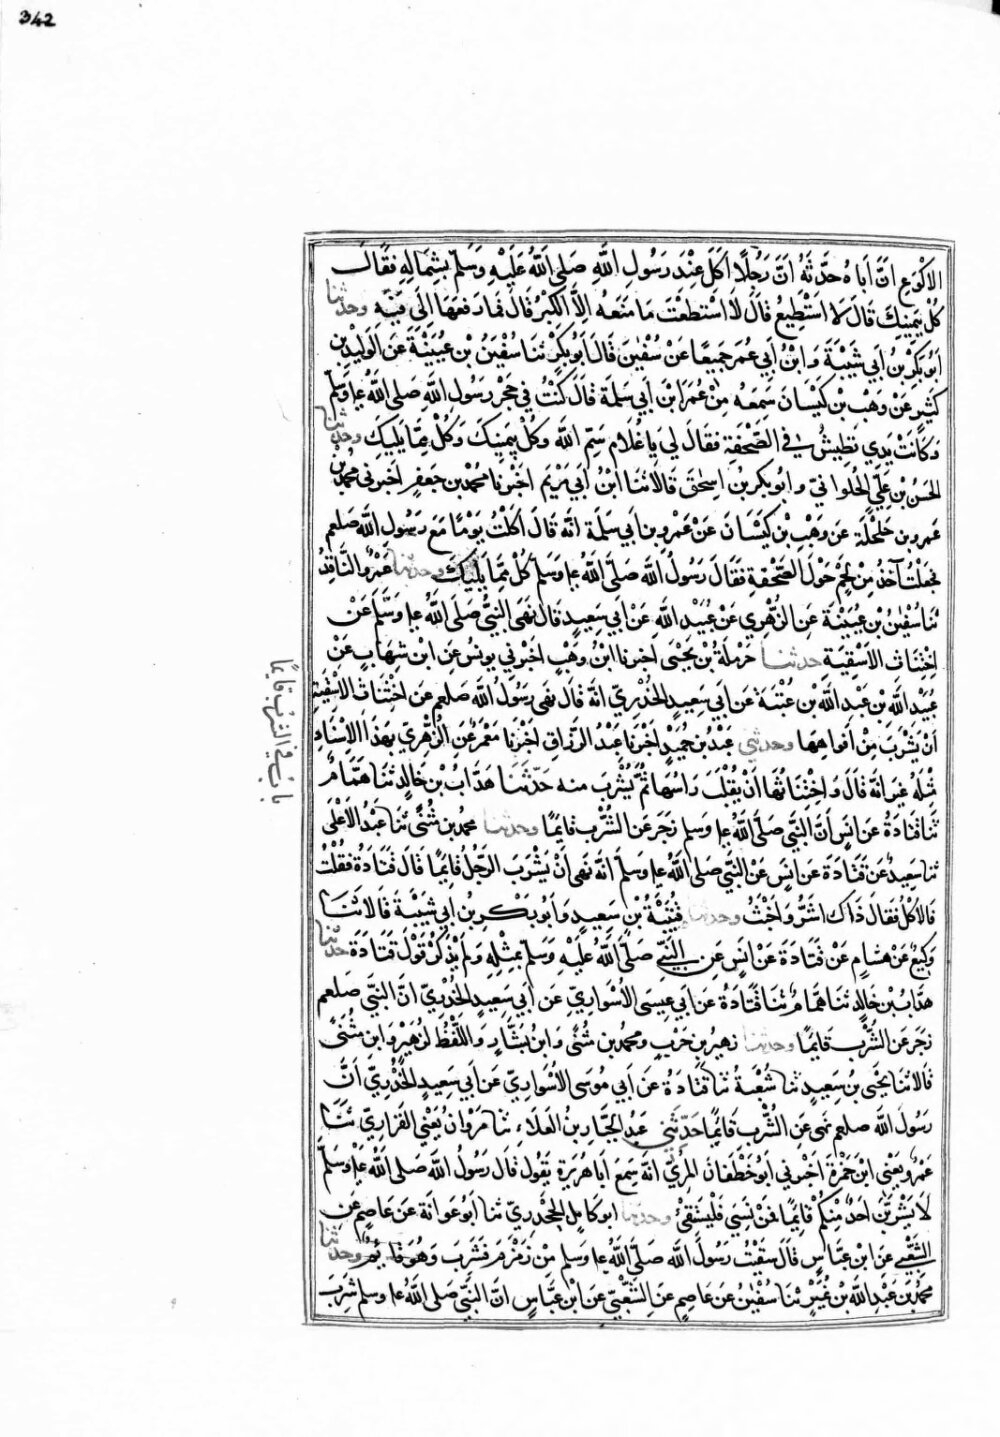 342
الاكْوَعِ انَّ اَباهُ حَدَّثَهُ اَنَّ رَجُلًا اَكَلَ عِنْدَ رَسُولِ اللَّهِ صَلى اللَّهُ عَلَيْهِ وَسَلَّمَ بِشِمَالِهِ فَقَالَ
كُلْ بِيَمِينِكَ قَالَ لا اسْتَطِيعُ قَالَ لا اسْتَطَعْتَ مَا مَنَعَهُ اِلَّا الكِبْرُ قَالَ فَمَا رَفَعَهَا اِلَى فِيهِ وحدثنا
اَبُو بَكْرِ بْنُ اَبِي شَيْبَةَ وَابْنُ اَبِي عُمَرَ جَمِيعًا عَنْ سُفْيٰنَ قَالَ اَبُو بَكْرٍ ثَنَا سُفْيٰنُ بْنُ عُيَيْنَةَ عَنِ الوَلِيدِ بْنِ
كَثِيرٍ عَنْ وَهْبِ بْنِ كَيْسَانَ سَمِعَهُ مِنْ عُمَرَ ابْنِ اَبِي سَلَمَةَ قَالَ كُنْتُ فِي حَجْرِ رَسُولِ اللَّهِ صلى اللَّهُ علٮه وسَلَّم
وَكَانَتْ يَدِي تَطِيشُ فِي الصَّحْفَةِ فَقَالَ لِي يَا غُلَامُ سَمِّ اللَّهَ وَكُلْ بِيَمِينِكَ وَكُلْ مِمَّا يَلِيكَ وحدثنا
الحَسَنُ بْنُ عَلِيٍّ الحُلوانِيّ وابُو بَكْرِ بْنُ اِسْحٰقَ قَالَا ثَنَا ابْنُ اَبِي مَرْيَمَ اَخْبَرَنَا مُحَمَّدُ بْنُ جَعْفَرٍ اَخْبَرَنِي مُحَمَّدُ بْنُ
عَمرِو بنِ حَلحَلَة عَن وَهْبِ بْنِ كَيْسَانَ عَنْ عَمْرِو بنِ اَبِي سَلَمَةَ اَنَّهُ قَالَ اَكَلْتُ يَوْمًا مَعَ رَسُولِ اللَّهِ صلعم
فَجَعَلْتُ آخُذُ مِنْ لَحْمٍ حَوْلَ الصَّحْفَةِ فَقَالَ رَسُولُ اللَّهِ صَلَّى اللَّهُ علٮه وَسَلَّمَ كُلْ مِمَّا يَلِيكَ وحدثنا عَمْرٌو النَّاقِدُ
ثَنَا سُفْيٰنُ بْنُ عُيَيْنَةَ عَنِ الزُّهْرِي عَنْ عُبَيْدِ اللَّهِ عَنْ اَبِي سَعِيدٍ قَالَ نَهَى النَّبِيُّ صَلَى اللَّهُ علٮه وَسَلَّمَ عَنْ
اخْتِنَاثِ الاَسْقِيَةِ حدثنا حَرْمَلَةُ بْنُ يَحْيَى اَخبرنا ابْنُ وَهْبٍ اَخْبَرَنِي يُونُسُ عَنِ ابْنِ شِهَابٍ عَنْ
عُبَيْدِ اللَّهِ بْنِ عَبْدِ اللَّهِ بْنِ عُتْبَةَ عَنْ اَبِي سَعِيدٍ الخُدْرِيّ اَنَّهُ قَالَ نَهَى رَسُولُ اللَّهِ صَلعم عَنِ اخْتِنَاثِ الاَسْقِيَةِ
اَنْ يُشْرَبَ مِنْ اَفْوَاهِهَا وحدثني عَبْدُ بْنُ حُمَيْدٍ اَخْبَرَنَا عَبْدُ الرَّزَّاقِ اَخْبَرَنَا مَعْمَرٌ عَنِ الزُّهْرِيّ بِهَذَا الاِسْنَادِ
مِثْلَهُ غَيرَ انَّهُ قَالَ وَاخْتِنَاثُهَا اَنْ يُقْلَبَ رَاسُهَا ثُمَّ يُشْرَبَ منه حَدَّثَنَا هَدَّابُ بْنُ خَالِدٍ ثَنَا هَمَّامٌ
ثَنَا قَتَادَةُ عَنْ اَنَسٍ اَنَّ النَّبِيَّ صَلَّى اللَّهُ علٮه وَسلم زَجَرَ عَنِ الشُّرْبِ قَايِمًا وحدثنا مُحَمَّدُ بنُ مُثَنًّى ثَنَا عَبْدُ الاَعْلَى
ثنا سَعِيدٌ عَنْ قَتَادَةَ عَنْ اَنَسٍ عَنْ النَّبِيّ صَلَى اللَّهُ علٮه وَسَلَّمَ اَنَّهُ نَهَى اَنْ يَشْرَبَ الرَّجُلُ قَايِمًا قَالَ قَتَادَةُ فَقُلْتُ
فَالاَكْلُ فَقَالَ ذَاكَ اَشَرُّ وَاَخْبَثُ وحدثنا قُتَيْبَةُ بْنُ سَعِيدٍ وَاَبُو بَكْرِ بْنُ اَبِي شَيْبَةَ قَالَا ثَنَا
وَكِيعٌ عَنْ هِشَامٍ عَنْ قَتَادَةَ عَنْ اَنَسٍ عَنِ النَّبِيِّ صَلَّى اللَّهُ عَلَيْهِ وَسَلَّمَ بِمِثْلِهِ وَلَمْ يَذْكُرْ قَوْلَ قَتَادَةَ حدثنا
هَدَّابُ بْنُ خَالِدٍ ثَنَا هَمَّامٌ ثَنَا قَتَادَةُ عَنْ اَبِي عِيسَى الاُسْوَارِيّ عَن اَبِي سَعِيدٍ الخُدْرِيّ اَنَّ النَّبِيَّ صلعم
زَجَرَ عَنِ الشُّرْبِ قَايِمًا وحدثنا زُهَيْرُ بن حَرْبٍ ومُحَمَّدُ بن مُثَنًّى وَابْنُ بَشَّارٍ وَاللَّفْظُ لِزُهَيْرٍ وَابْنِ مُثَنًّى
قَالَا ثَنَا يَحْيَى بْنُ سَعِيدٍ ثَنَا شُعْبَةُ ثَنَا قَتَادَةُ عَنْ اَبِي مُوسَى الاُسْوَارِيّ عَنْ اَبِي سَعِيدٍ الخُدْرِيّ اَنَّ
رَسُولَ اللَّهِ صلعم نَهَى عَنِ الشُّرْبِ قَايِمًا حَدَّثَنِي عَبْدُ الجَبَّارِ بْنُ العَلَاءِ ثَنَا مَرْوَانُ يَعْنِي الفَزَارِيّ ثَنَا
عُمَرُ يَعْنِي ابْنَ حَمْزَةَ اَخْبَرَنِي اَبُو غَطَفَانَ المُرِّيُّ اَنَّهُ سَمِعَ اَبَا هُرَيْرَةَ يَقُولُ قَالَ رَسُولُ اللَّهِ صَلى اللَّهُ علٮه وسلّم
لَا يَشْرَبَنَّ اَحَدٌ مِنْكُمْ قَايِمًا فَمَنْ نَسِيَ فَلْيَسْتَقِئْ وحدثنا اَبُو كَامِلٍ الجَحْدَرِيّ ثَنَا اَبُو عَوَانَةَ عَنْ عَاصِمٍ عَنِ
الشَّعْبِيِّ عَنِ ابْنِ عَبَّاسٍ قَالَ سَقَيْتُ رَسُولَ اللَّهِ صَلَّى اللَّهُ علٮه وَسلم مِنْ زَمْزَمَ فَشَرِبَ وَهُوَ قَايِمٌ وحدثنا
مُحَمَّدُ بْنُ عَبْدِ اللَّهِ بْنِ نُمَيْرٍ ثَنَا سُفْيٰنُ عَنْ عَاصِمٍ عَنِ الشَّعْبِيّ عَنِ ابْنِ عَبَّاسٍ اَنَّ النَّبِيَّ صَلى اللَّهُ علٮه وسلم شَرِبَ
بابٌ في الشرب قايمًا